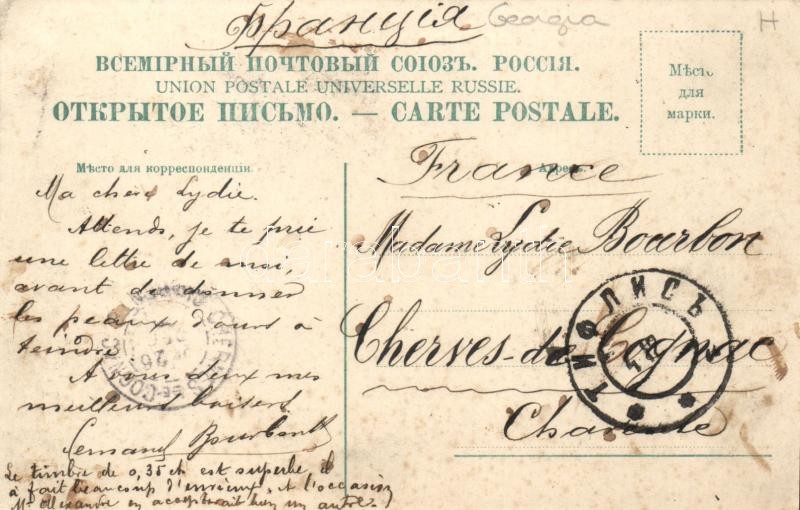 Франція Georgia H
ВСЕМІРНЫЙ ПОЧТОВЫЙ СОЮЗЪ. РОССІЯ.
UNION POSTALE UNIVERSELLE RUSSIE.
ОТКРЫТОЕ ПИСЬМО. — CARTE POSTALE.
Мѣсто
для
марки.
Мѣсто для корреспонденціи.
Ma chère Lydie.
Attends, je te prie
une lettre de moi,
avant de donner
les peaux d'ours à
teindre.
A vous deux mes
meilleurs baisers.
Fernand
Le timbre de 0,35 ct est superbe, il
a fait beaucoup d'envieux, et l'occasion
Mr Alexandre en accepterait bien un autre.
Адресъ.
France
Madame Lydie Bourbon
Cherves-de-Cognac
Charente
ТИФЛИСЪ